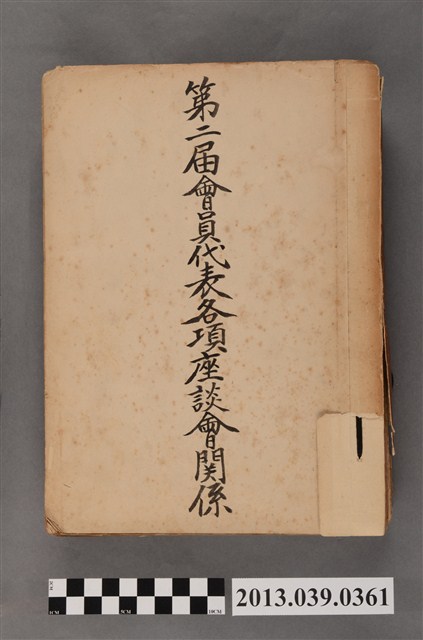 第二届會員代表各項座談會関係
2013.039.0361